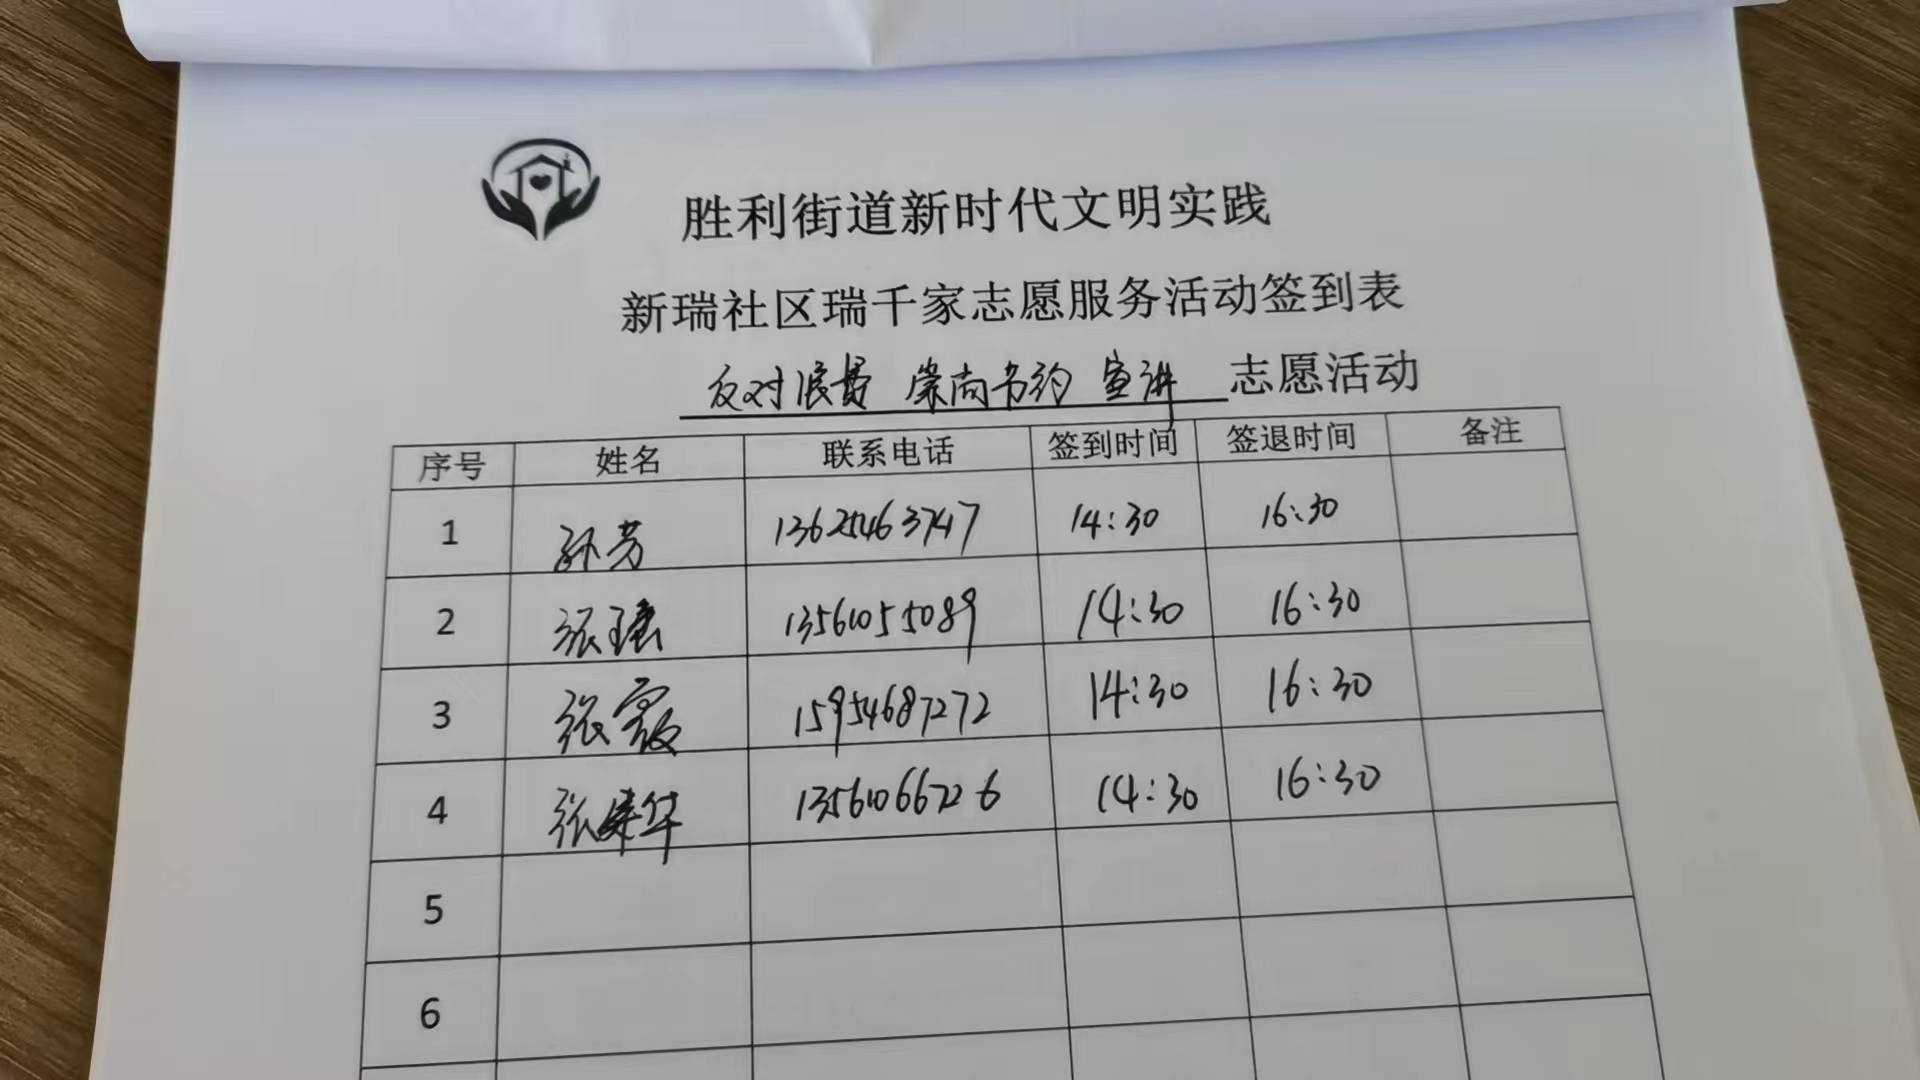 胜利街道新时代文明实践
新瑞社区瑞千家志愿服务活动签到表
反对浪费 崇尚节约 宣讲 志愿活动
序号 姓名 联系电话 签到时间 签退时间 备注
1 孙芳 13625463747 14:30 16:30
2 张瑶 13561055089 14:30 16:30
3 张霞 15954687272 14:30 16:30
4 张建华 13561066726 14:30 16:30
5
6